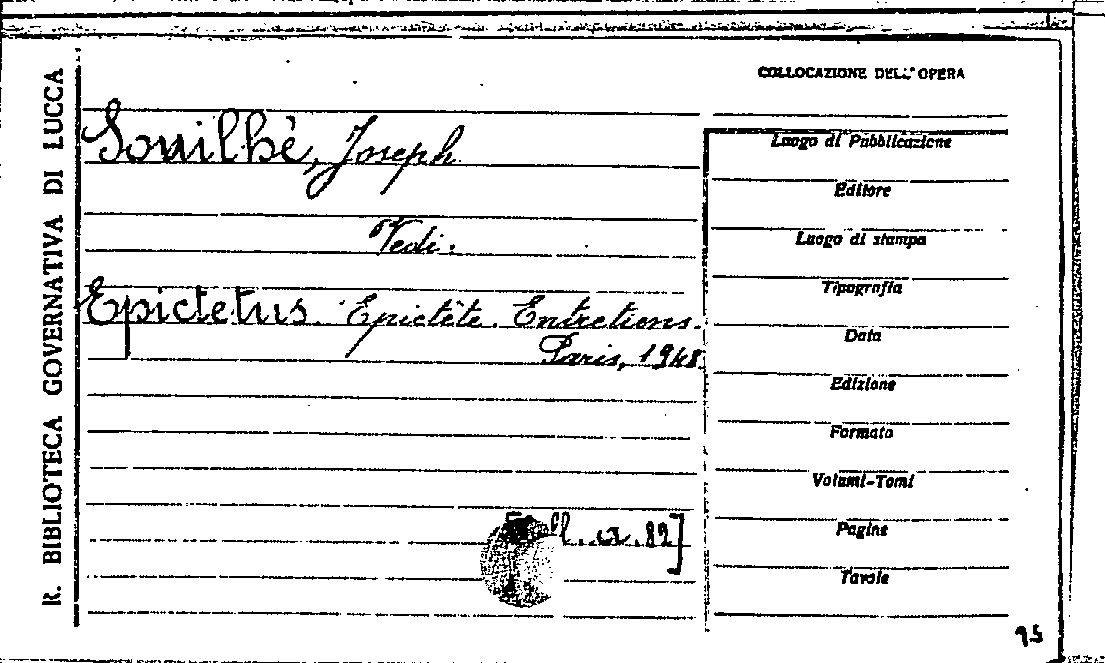 R. BIBLIOTECA GOVERNATIVA DI LUCCA
COLLOCAZIONE DELL'OPERA
Souilhè, Joseph
Vedi:
Epictetus. Epictète. Entretiens.
Paris, 1948.
Coll. a. 82]
Luogo di Pubblicazione
Editore
Luogo di stampa
Tipografia
Data
Edizione
Formato
Volumi-Tomi
Pagine
Tavole
95